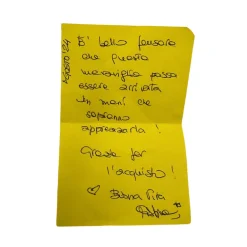 Agosto '24
È bello pensare
che questa
meraviglia possa
essere arrivata
in mani che
sapranno
apprezzarla!
Grazie per
l'acquisto!
♡ Buona Vita